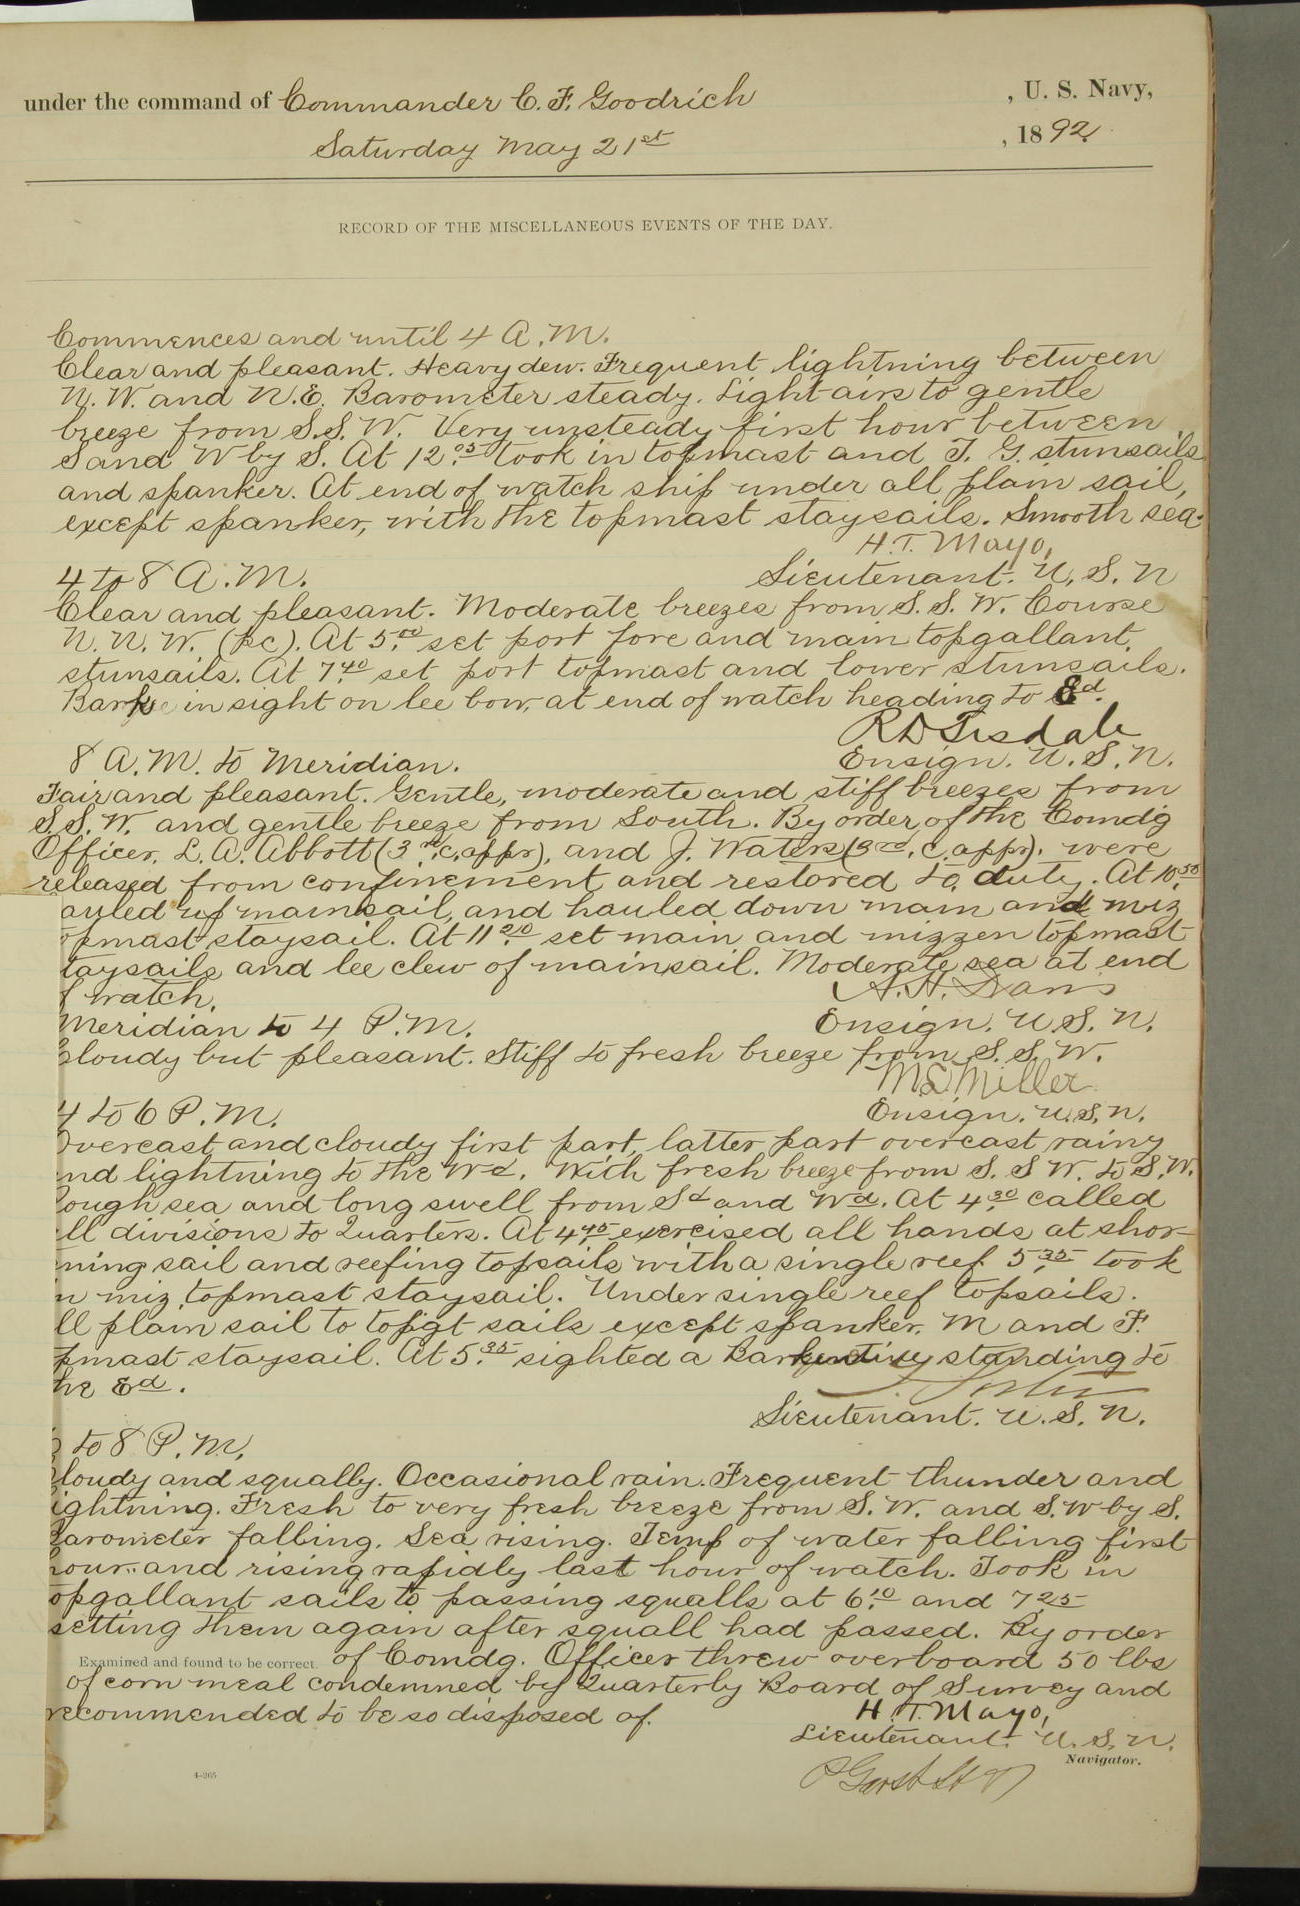 under the command of Commander C. F. Goodrich , U. S. Navy,
Saturday May 21st , 1892.
RECORD OF THE MISCELLANEOUS EVENTS OF THE DAY.
Commences and until 4 A.M.
Clear and pleasant. Heavy dew. Frequent lightning between
N. W. and N.E. Barometer steady. Light airs to gentle
breeze from S.S.W. Very unsteady first hour between
S and W by S. At 12.05 took in topmast and T. G. stunsails
and spanker. At end of watch ship under all plain sail,
except spanker, with the topmast staysails. Smooth sea.
H. T. Mayo,
4 to 8 A.M. Lieutenant. U. S. N
Clear and pleasant. Moderate breezes from S. S. W. Course
N. N. W. (pc). At 5.00 set port fore and main topgallant.
stunsails. At 7.40 set port topmast and lower stunsails.
Bark in sight on lee bow, at end of watch heading to Ed.
R D Tisdale
8 A.M. to Meridian. Ensign. U. S. N.
Fair and pleasant. Gentle, moderate and stiff breezes from
S. S. W. and gentle breeze from South. By order of the Comdg
Officer, L. A. Abbott (3rd. c. appr), and J. Waters (3rd. c. appr). were
released from confinement and restored to duty. At 10.50
auled up mainsail, and hauled down main and miz
opmast staysail. At 11.20 set main and mizzen topmast
taysails and lee clew of mainsail. Moderate sea at end
f watch.
Meridian to 4 P.M. Ensign. U. S. N.
loudy but pleasant. Stiff to fresh breeze from S. S. W.
Miller
4 to 6 P.M. Ensign. U. S. N.
Overcast and cloudy first part, latter part overcast, rainy
nd lightning to the Wd. With fresh breeze from S. S W. to S. W.
ough sea and long swell from Sd and Wd. At 4.30 called
ll divisions to Quarters. At 4.45 exercised all hands at shor-
ning sail and reefing topsails with a single reef. 5.35 took
n miz. topmast staysail. Under single reef topsails.
ll plain sail to topgt sails except spanker. M and F.
pmast staysail. At 5.35 sighted a Barkentine standing to
he Ed.
Lieutenant. U. S. N.
to 8 P.M.
loudy and squally. Occasional rain. Frequent thunder and
ightning. Fresh to very fresh breeze from S. W. and S. W by S.
Barometer falling. Sea rising. Temp of water falling first
hour. and rising rapidly last hour of watch. Took in
opgallant sails to passing squalls at 6.10 and 7.25
setting them again after squall had passed. By order
Examined and found to be correct. of Comdg. Officer threw overboard 50 lbs
of corn meal condemned by Quarterly Board of Survey and
recommended to be so disposed of. H. T. Mayo,
Lieutenant. U. S. N.
Navigator.
4—265